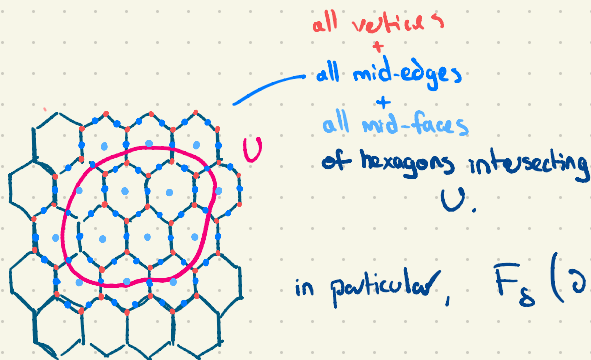 all vertices
+
all mid-edges
+
all mid-faces
of hexagons intersecting
U.
U
in particular, F_δ (∂